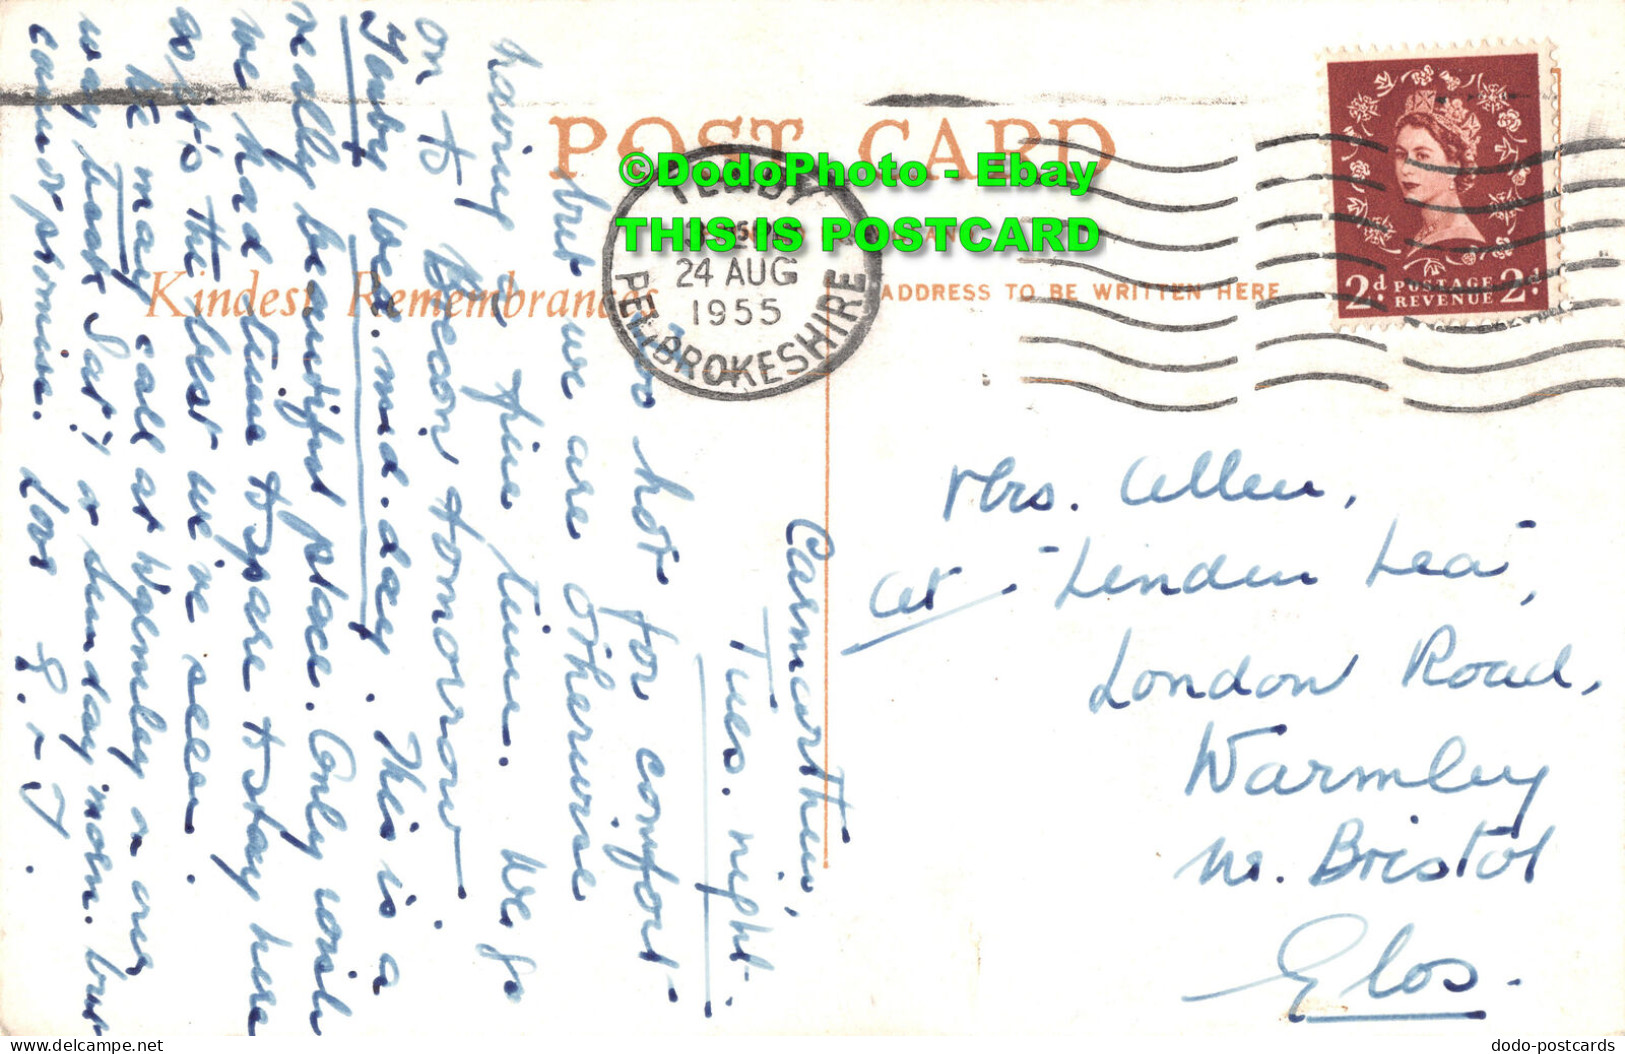 POST CARD
©DodoPhoto - Ebay
THIS IS POSTCARD
TENBY
24 AUG
1955
PEMBROKESHIRE
Kindest Remembrances
ADDRESS TO BE WRITTEN HERE
2d POSTAGE 2d
REVENUE
Carmarthen,
Tues. night.
Too hot for comfort
but we are otherwise
having a fine time. We go
on to Brecon tomorrow.
Tenby Wed. mid-day. This is a
really beautiful place. Only wish
we had time to spare to stay here
as it's the best we've seen.
We may call at Wgemley on our
way back Sat? or Sunday morn. but
cannot promise. Love
Mrs. Allen,
at "Linden Lea",
London Road,
Warmley
nr. Bristol
Glos.
dodo-postcards
www.delcampe.net